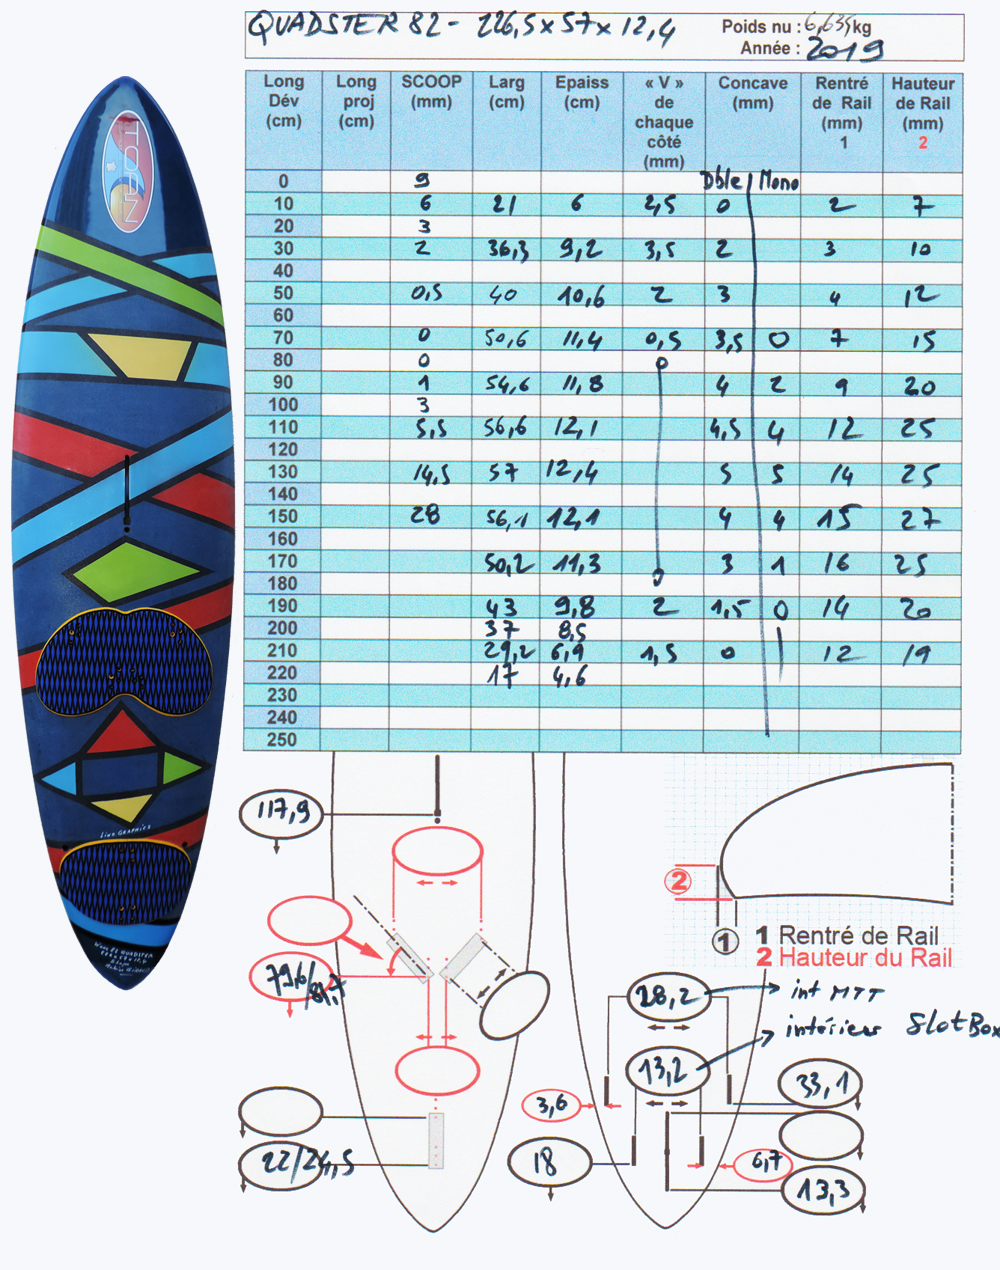 QUADSTER 82 - 226,5 x 57 x 12,4
Poids nu : 6,635 kg
Année : 2019
Long Dév (cm) | Long proj (cm) | SCOOP (mm) | Larg (cm) | Epaiss (cm) | « V » de chaque côté (mm) | Concave (mm) | Rentré de Rail (mm) 1 | Hauteur de Rail (mm) 2
0 9 Dble | Mono
10 6 21 6 2,5 0 2 7
20 3
30 2 36,3 9,2 3,5 2 3 10
40
50 0,5 40 10,6 2 3 4 12
60
70 0 50,6 11,4 0,5 3,5 0 7 15
80 0 0
90 1 54,6 11,8 4 2 9 20
100 3
110 5,5 56,6 12,1 4,5 4 12 25
120
130 14,5 57 12,4 5 5 14 25
140
150 28 56,1 12,1 4 4 15 27
160
170 50,2 11,3 3 1 16 25
180 0
190 43 9,8 2 1,5 0 14 20
200 37 8,5
210 29,2 6,9 1,5 0 12 19
220 17 4,6
230
240
250
117,9
79,6/81,7
22/24,5
2
1
1 Rentré de Rail
2 Hauteur du Rail
28,2 int MTT
intérieur SlotBox
13,2
33,1
3,6
18
6,7
13,3
Lina GRAPHICS